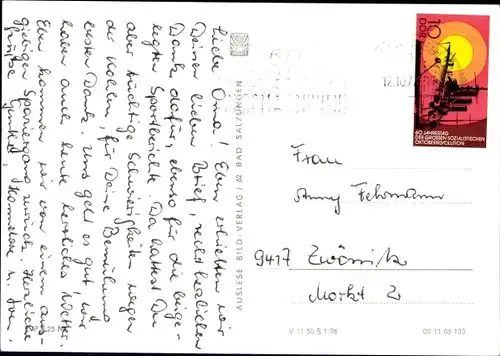 Liebe Oma! Eben erhielten wir
Deinen lieben Brief, recht herzlichen
Dank dafür, ebenso für die beige-
legten Sportberichte. Da hattest Du
aber tüchtige Schwierigkeiten wegen
der Kohlen, für Deine Bemühung
besten Dank. Uns geht es gut, wir
haben auch heute herrliches Wetter.
Eben kommen wir von einem aus-
giebigen Spaziergang zurück. Herzliche
Grüße
Hannelore u.
AUSLESE BILD-VERLAG / 62 BAD SALZUNGEN
10
DDR
60. JAHRESTAG
DER GROSSEN SOZIALISTISCHEN
OKTOBERREVOLUTION
12.10.7
Frau
Anny Fehrmann
9417 Zwönitz
Markt 2
V 11 50 S 1/76
09 11 08 133